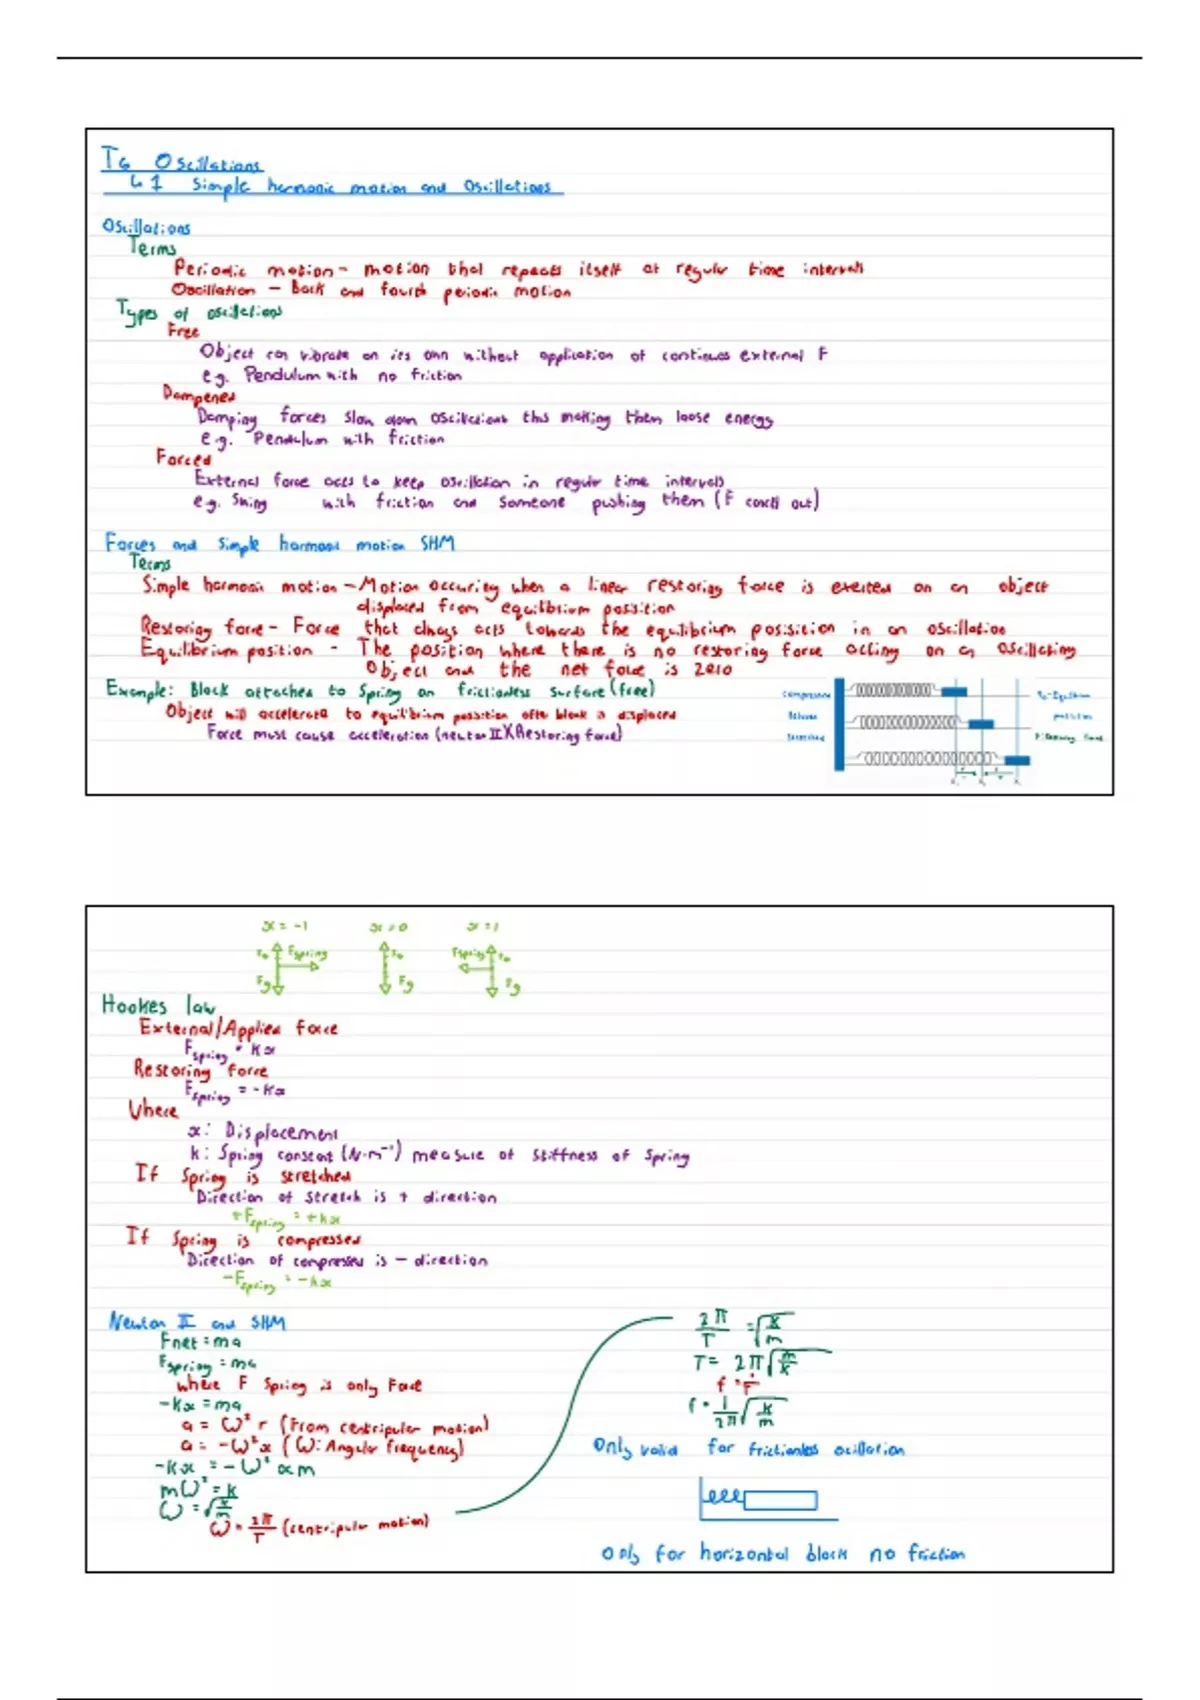 T6 Oscillations
6.1 Simple harmonic motion and Oscillations
Oscillations
Terms
Periodic motion - motion that repeats itself at regular time intervals
Oscillation - Back and fourth periodic motion
Types of oscillations
Free
Object can vibrate on its own without application of continuos external F
e.g. Pendulum with no friction
Dampened
Damping forces slow down oscillations thus making them loose energy
e.g. Pendulum with friction
Forced
External force acts to keep oscillation in regular time intervals
e.g. Swing with friction and someone pushing them (F cancels out)
Forces and Simple harmonic motion SHM
Terms
Simple harmonic motion - Motion occuring when a linear restoring force is exerted on an object
displaced from equilibrium possition
Restoring force - Force that always acts towards the equilibrium possition in an oscillation
Equilibrium position - The possition where there is no restoring force acting on an oscillating
Object and the net force is zero
Example: Block attached to Spring on frictionless surface (free)
Object will accelerate to equilibrium possition after block is displaced
Force must cause acceleration (newton II)(Restoring force)
Compressed
Stretched
x = -1 x = 0 x = 1
Fspring Fspring
Fg Fg Fg
Hookes law
External/Applied force
Fspring = kx
Restoring force
Fspring = -kx
Where
x: Displacement
k: Spring constant (N·m⁻¹) measure of stiffness of spring
If spring is stretched
Direction of stretch is + direction
+Fspring = +kx
If spring is compressed
Direction of compressed is - direction
-Fspring = -kx
Newton II and SHM
Fnet = ma
Fspring = ma
where F spring is only force
-kx = ma
a = ω²r (From centripular motion)
a = -ω²x (ω: Angular frequency)
-kx = -ω²xm
mω² = k
ω = √k/m
ω = 2π/T (centripular motion)
2π/T = √k/m
T = 2π√m/k
f = 1/T
f = 1/2π √k/m
Only valid for frictionless ocillation
Only for horizontal block no friction